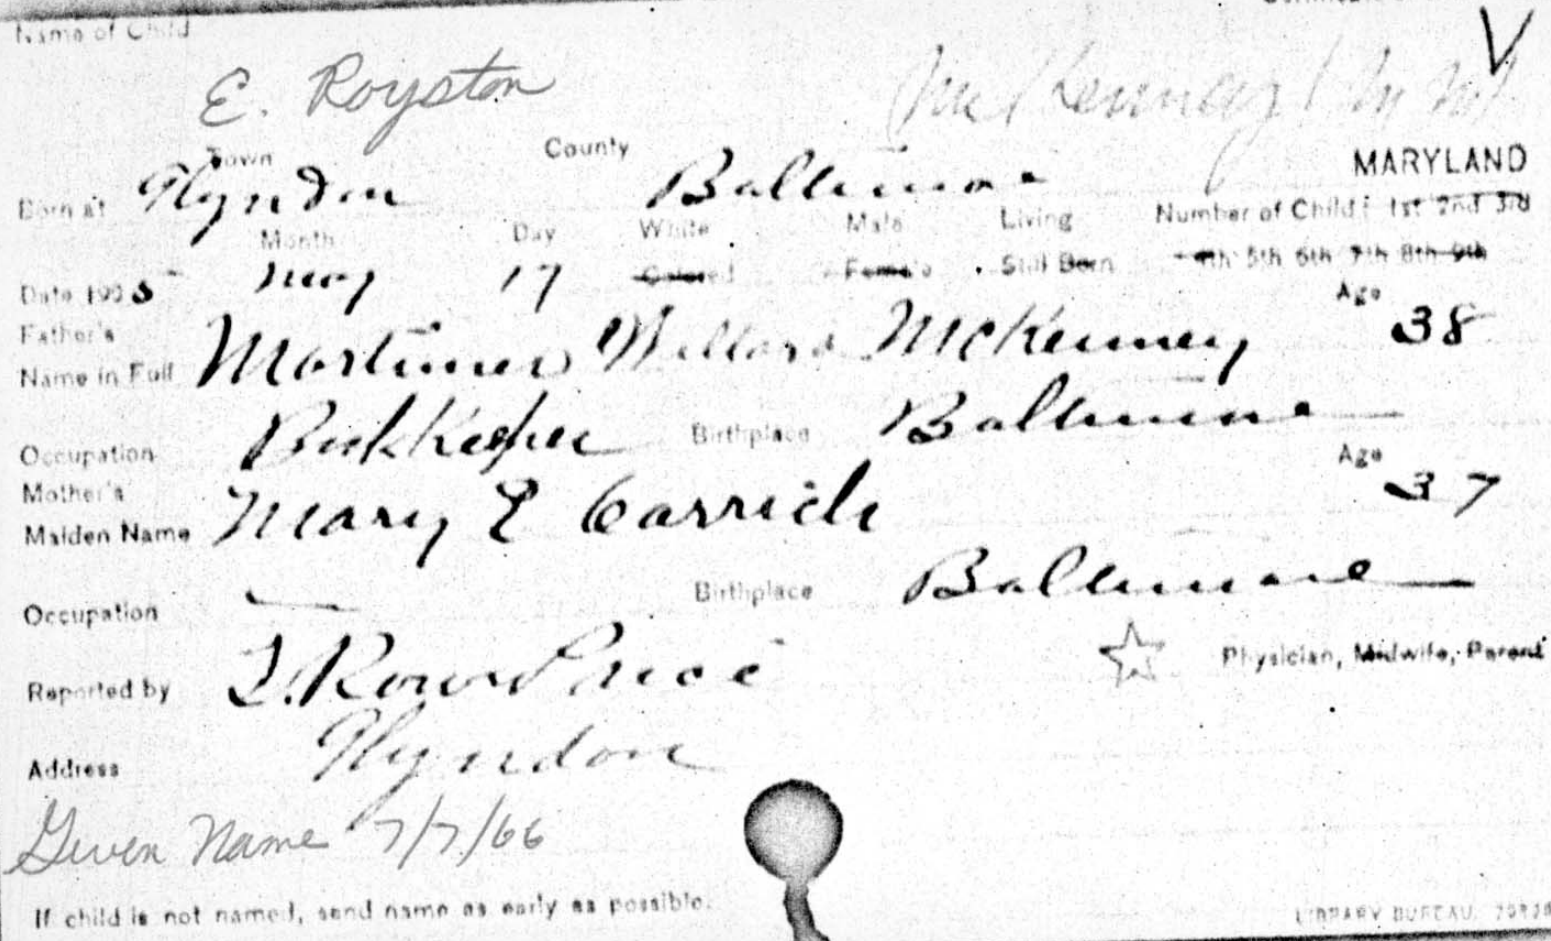 Name of Child
E. Royston McKenney
MARYLAND
Town County
Born at Glyndon Baltimore
Month Day White Male Living Number of Child: 1st 2nd 3rd
Date 1905 May 17 Colored Female Still Born 4th 5th 6th 7th 8th 9th
Father's Age
Name in Full Mortimer Willard McKenney 38
Occupation BookKeeper Birthplace Baltimore
Mother's Age
Maiden Name Mary E Carrick 37
Occupation — Birthplace Baltimore
Reported by T. Rowe Price Physician, Midwife, Parent
Address Glyndon
Given Name 7/7/66
If child is not named, send name as early as possible.
LIBRARY BUREAU